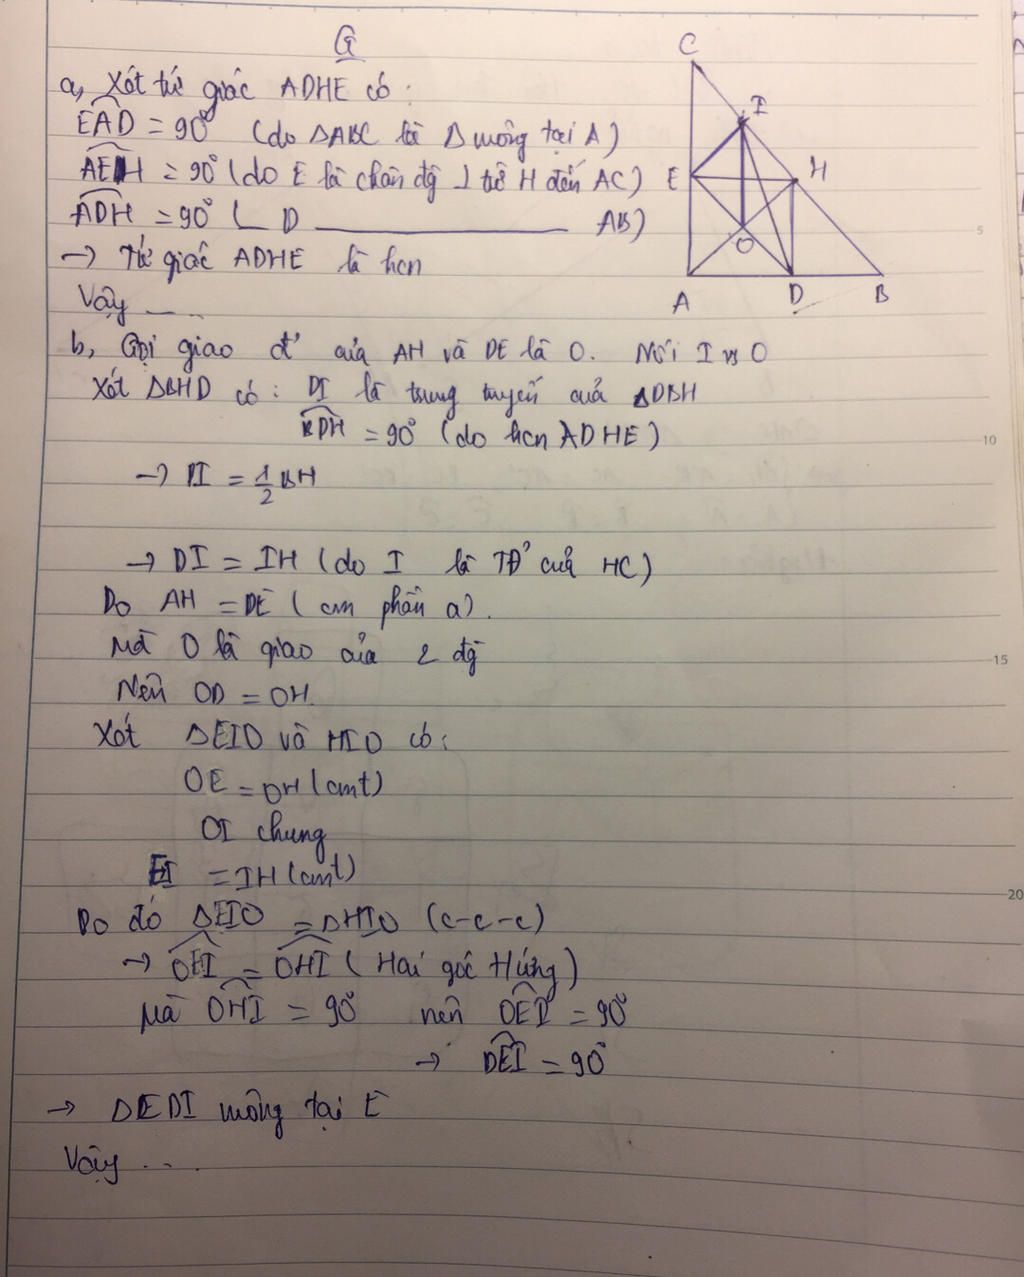 G
a, Xét tứ giác ADHE có:
EAD = 90° (do ΔABC là Δ vuông tại A)
AEH = 90° (do E là chân đg ⊥ từ H đến AC)
ADH = 90° ( D ——— AB)
→ Tứ giác ADHE là hcn
Vậy ....
b, Gọi giao đ' của AH và DE là O. Nối I vs O
Xét ΔBHD có: DI là trung tuyến của ΔDBH
BDH = 90° (do hcn ADHE)
→ DI = 1/2 BH
→ DI = IH (do I là TĐ' của HC)
Do AH = DE (cm phần a).
Mà O là giao của 2 đg
Nên OD = OH.
Xét ΔEIO và HIO có:
OE = OH (cmt)
OI chung
EI = IH (cmt)
Do đó ΔEIO = ΔHIO (c-c-c)
→ OEI = OHI (Hai góc tứng)
Mà OHI = 90° nên OEI = 90°
→ DEI = 90°
→ ΔEDI vuông tại E
Vậy ....
C
I
E
H
O
A
D
B
5
10
15
20